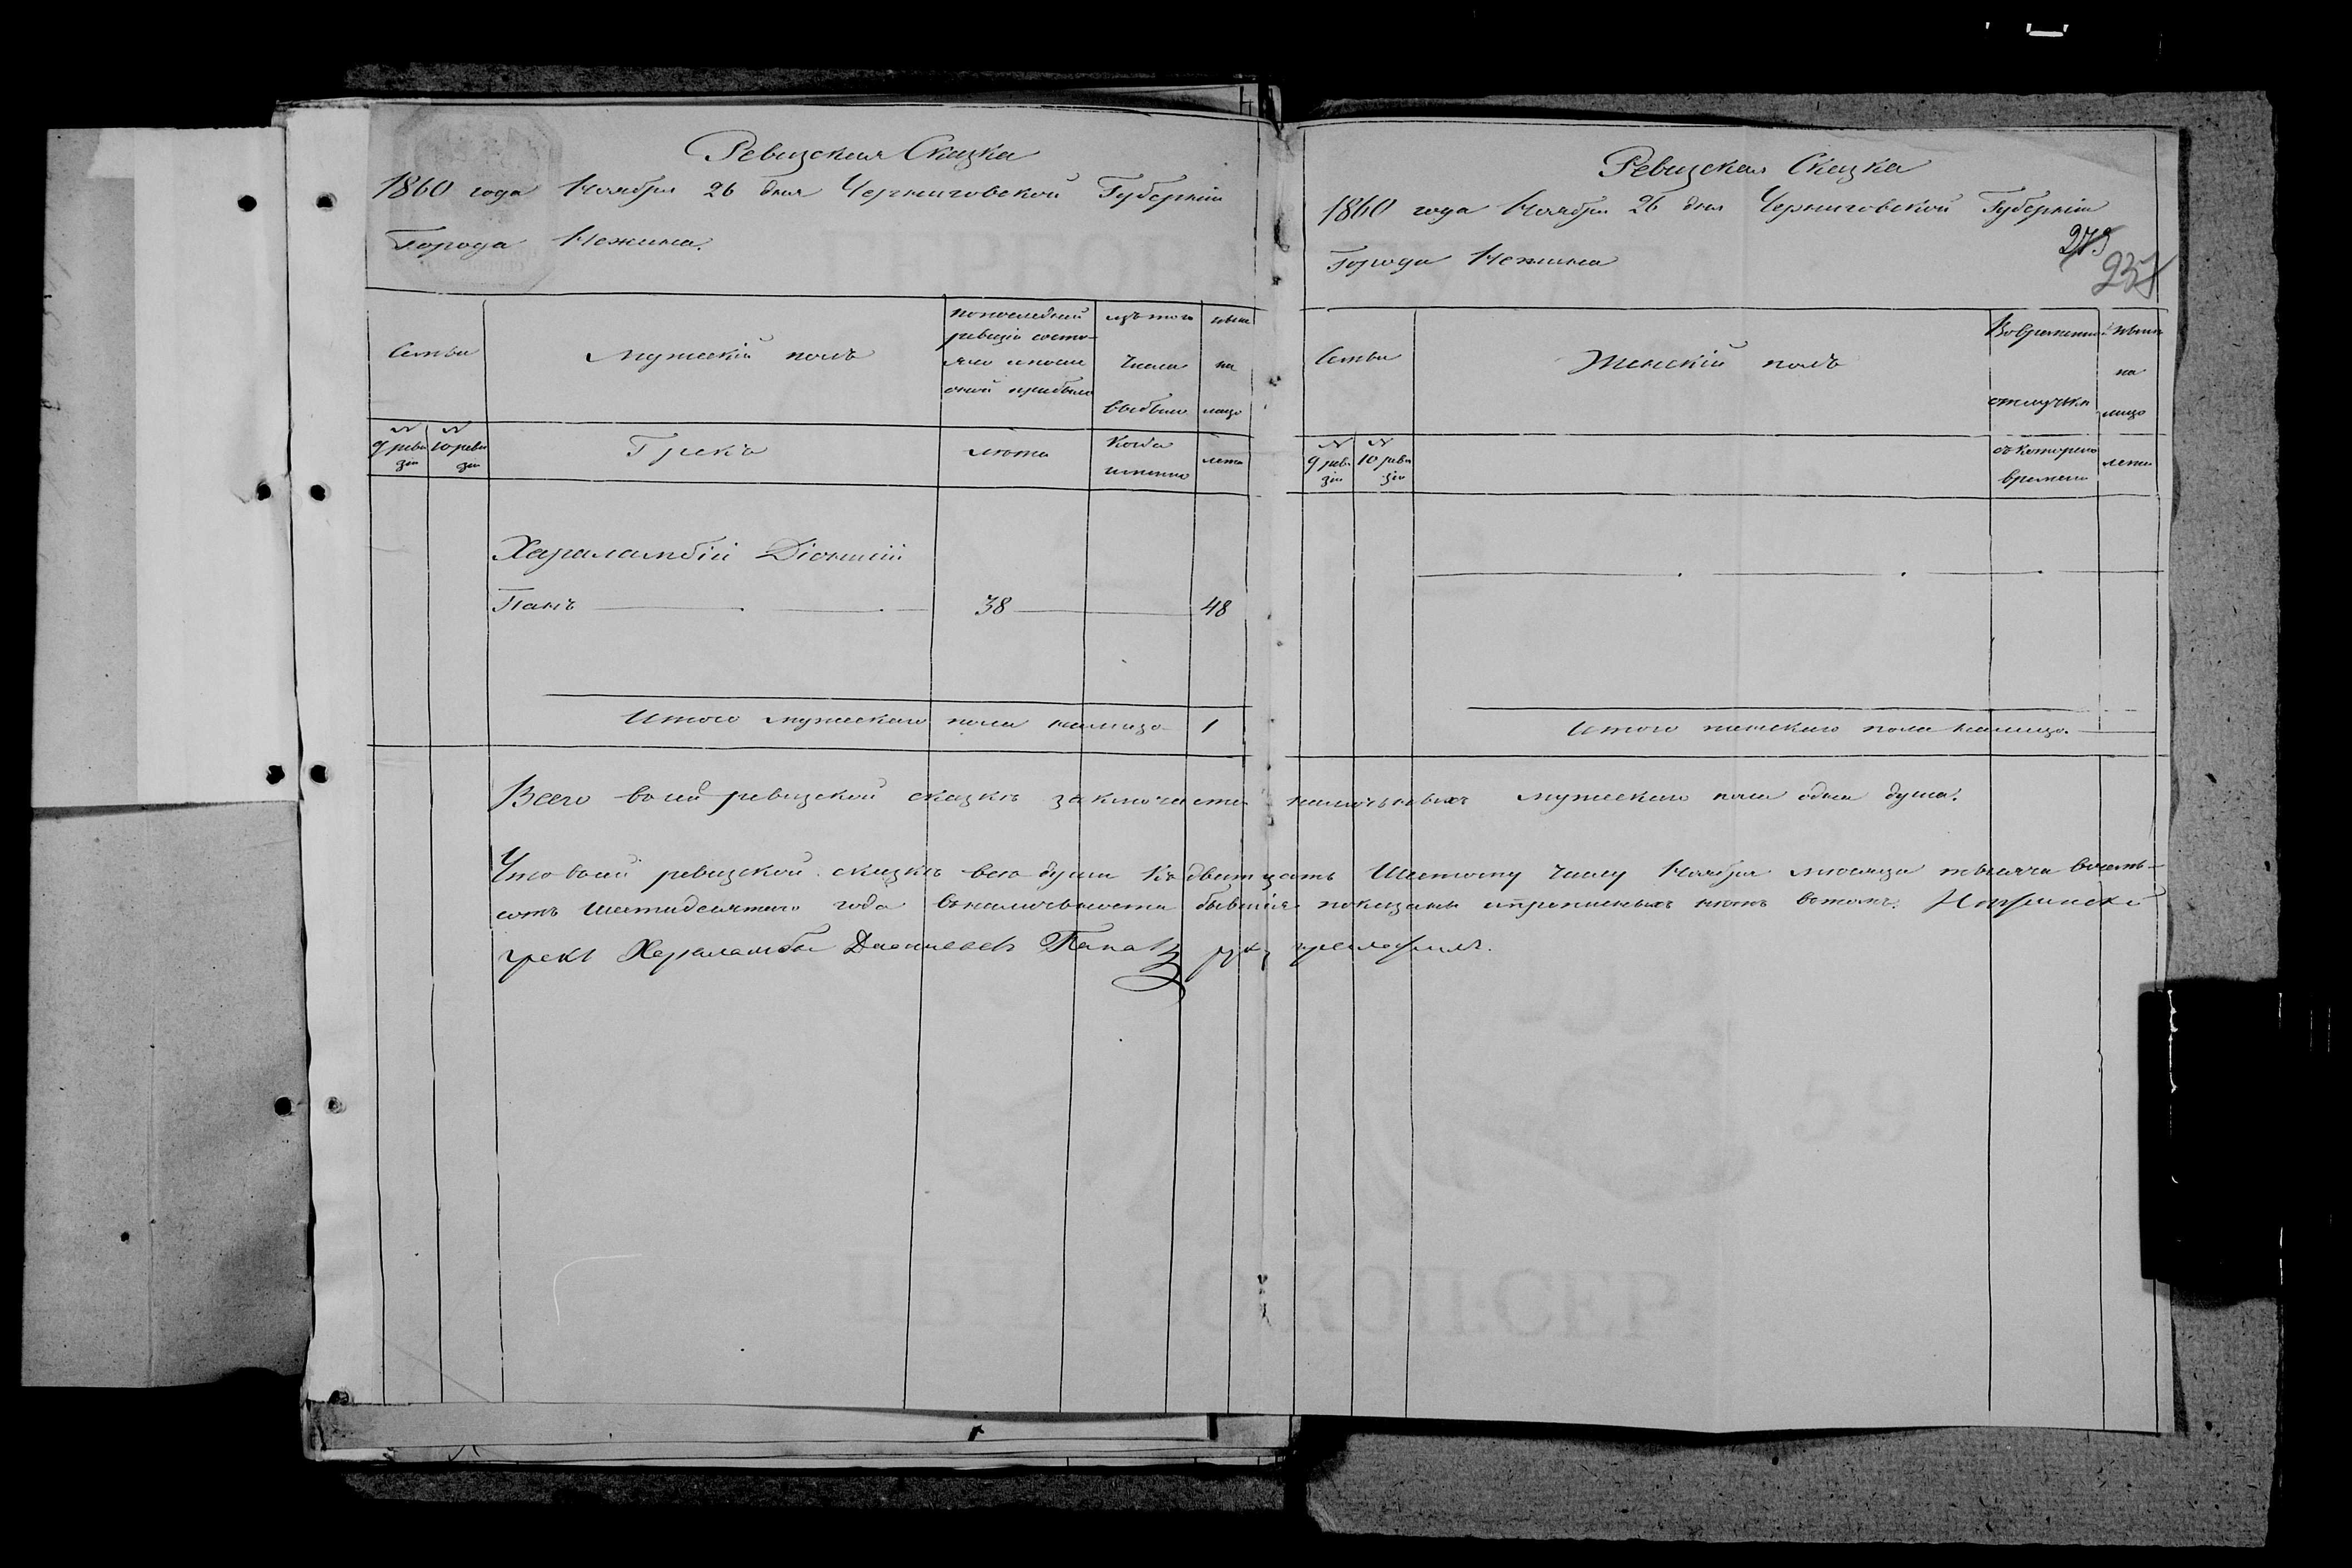 Ревизская Сказка
1860 года Ноября 26 дня Черниговской Губернiи
Города Нежина.
Семьи
Мужескiй полъ
По последней ревизiи состояло и после оной прибыло
изъ того числа выбыло
ныне на лицо
№ 9 ревизiи
№ 10 ревизiи
Грекъ
лета
Когда именно
лета
Харалампiй Дiонисiй
Папъ 38 48
Итого мужескаго пола налицо 1
Ревизская Сказка
1860 года Ноября 26 дня Черниговской Губернiи
Города Нежина
273
237
Семьи
Женскiй полъ
Во временной отлучке
Ныне на лицо
№ 9 ревизiи
№ 10 ревизiи
съ котораго времени
лета
Итого женскаго пола налицо.
Всего в сей ревизской сказке заключается наличныхъ мужескаго пола одна душа.
Что в сей ревизской сказке все души къ двадцать Шестому числу Ноября месяца тысяча восемь-
сотъ шестидесятаго года въ наличности бывшiя показаны и прописныхъ нетъ в томъ.
грекъ Хараламбы Дионисьевъ Папа руку приложилъ.